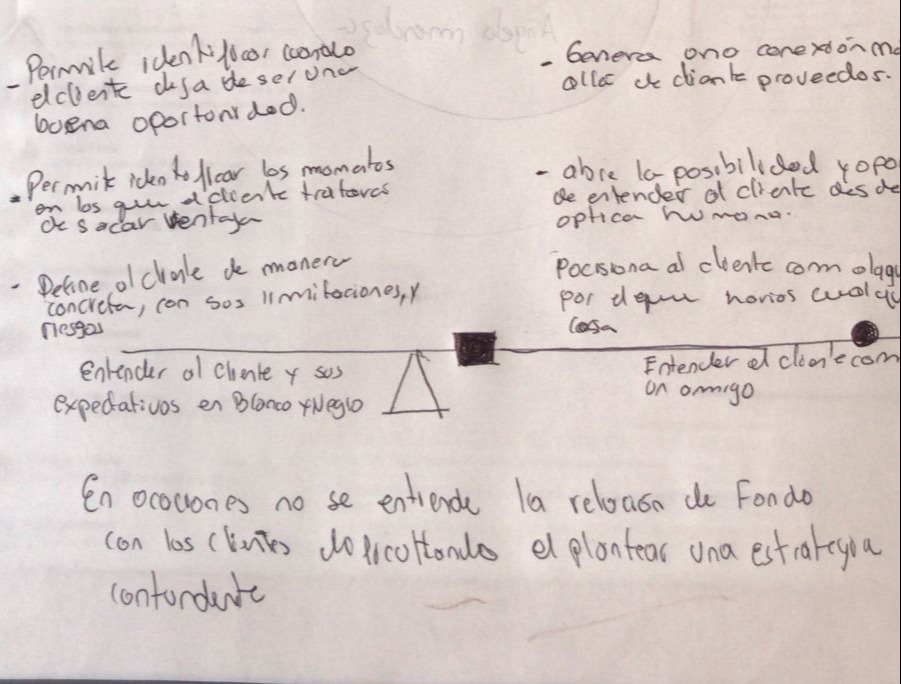 - Permite identificar cuando
el cliente deja de ser una
buena oportunidad.
- Permite identificar los momentos
en los que el cliente tratara
de sacar ventaja
- Define al cliente de manera
concreta, con sus limitaciones, y
riesgos
Entender al cliente y sus
expectativas en Blanco y Negro
- Genera una conexión m
allá de cliente proveedor.
- abre la posibilidad y opo
de entender al cliente desde
optica humana.
Pocisiona al cliente com
por el que harias cualq
cosa
Entender al cliente com
un amigo
En ocaciones no se entiende la relación de Fondo
con los clientes dificultando el plantear una estrategia
contundente